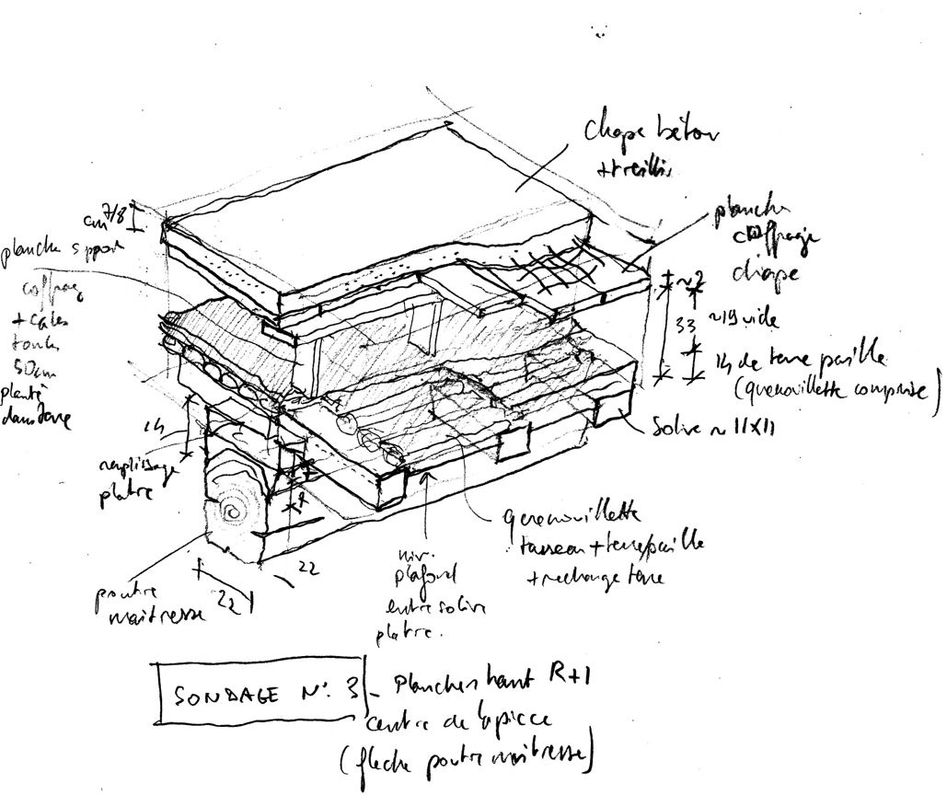 chape béton
+ treillis
7/8
cm
planche
coffrage
chape
planche support
coffrag
+ cales
touts
50cm
planté
dans terre
~2
33
~19 vide
14 de terre paille
(quenouillette comprise)
Solive ~ 11x11
14
remplissage
platre
quenouillette
tasseau + terre paille
+ rechange terre
niv.
plafond
entre solive
platre.
22
22
poutre
maitresse
SONDAGE N°. 3 - Plancher haut R+1
centre de la piece
(fleche poutre maitresse)